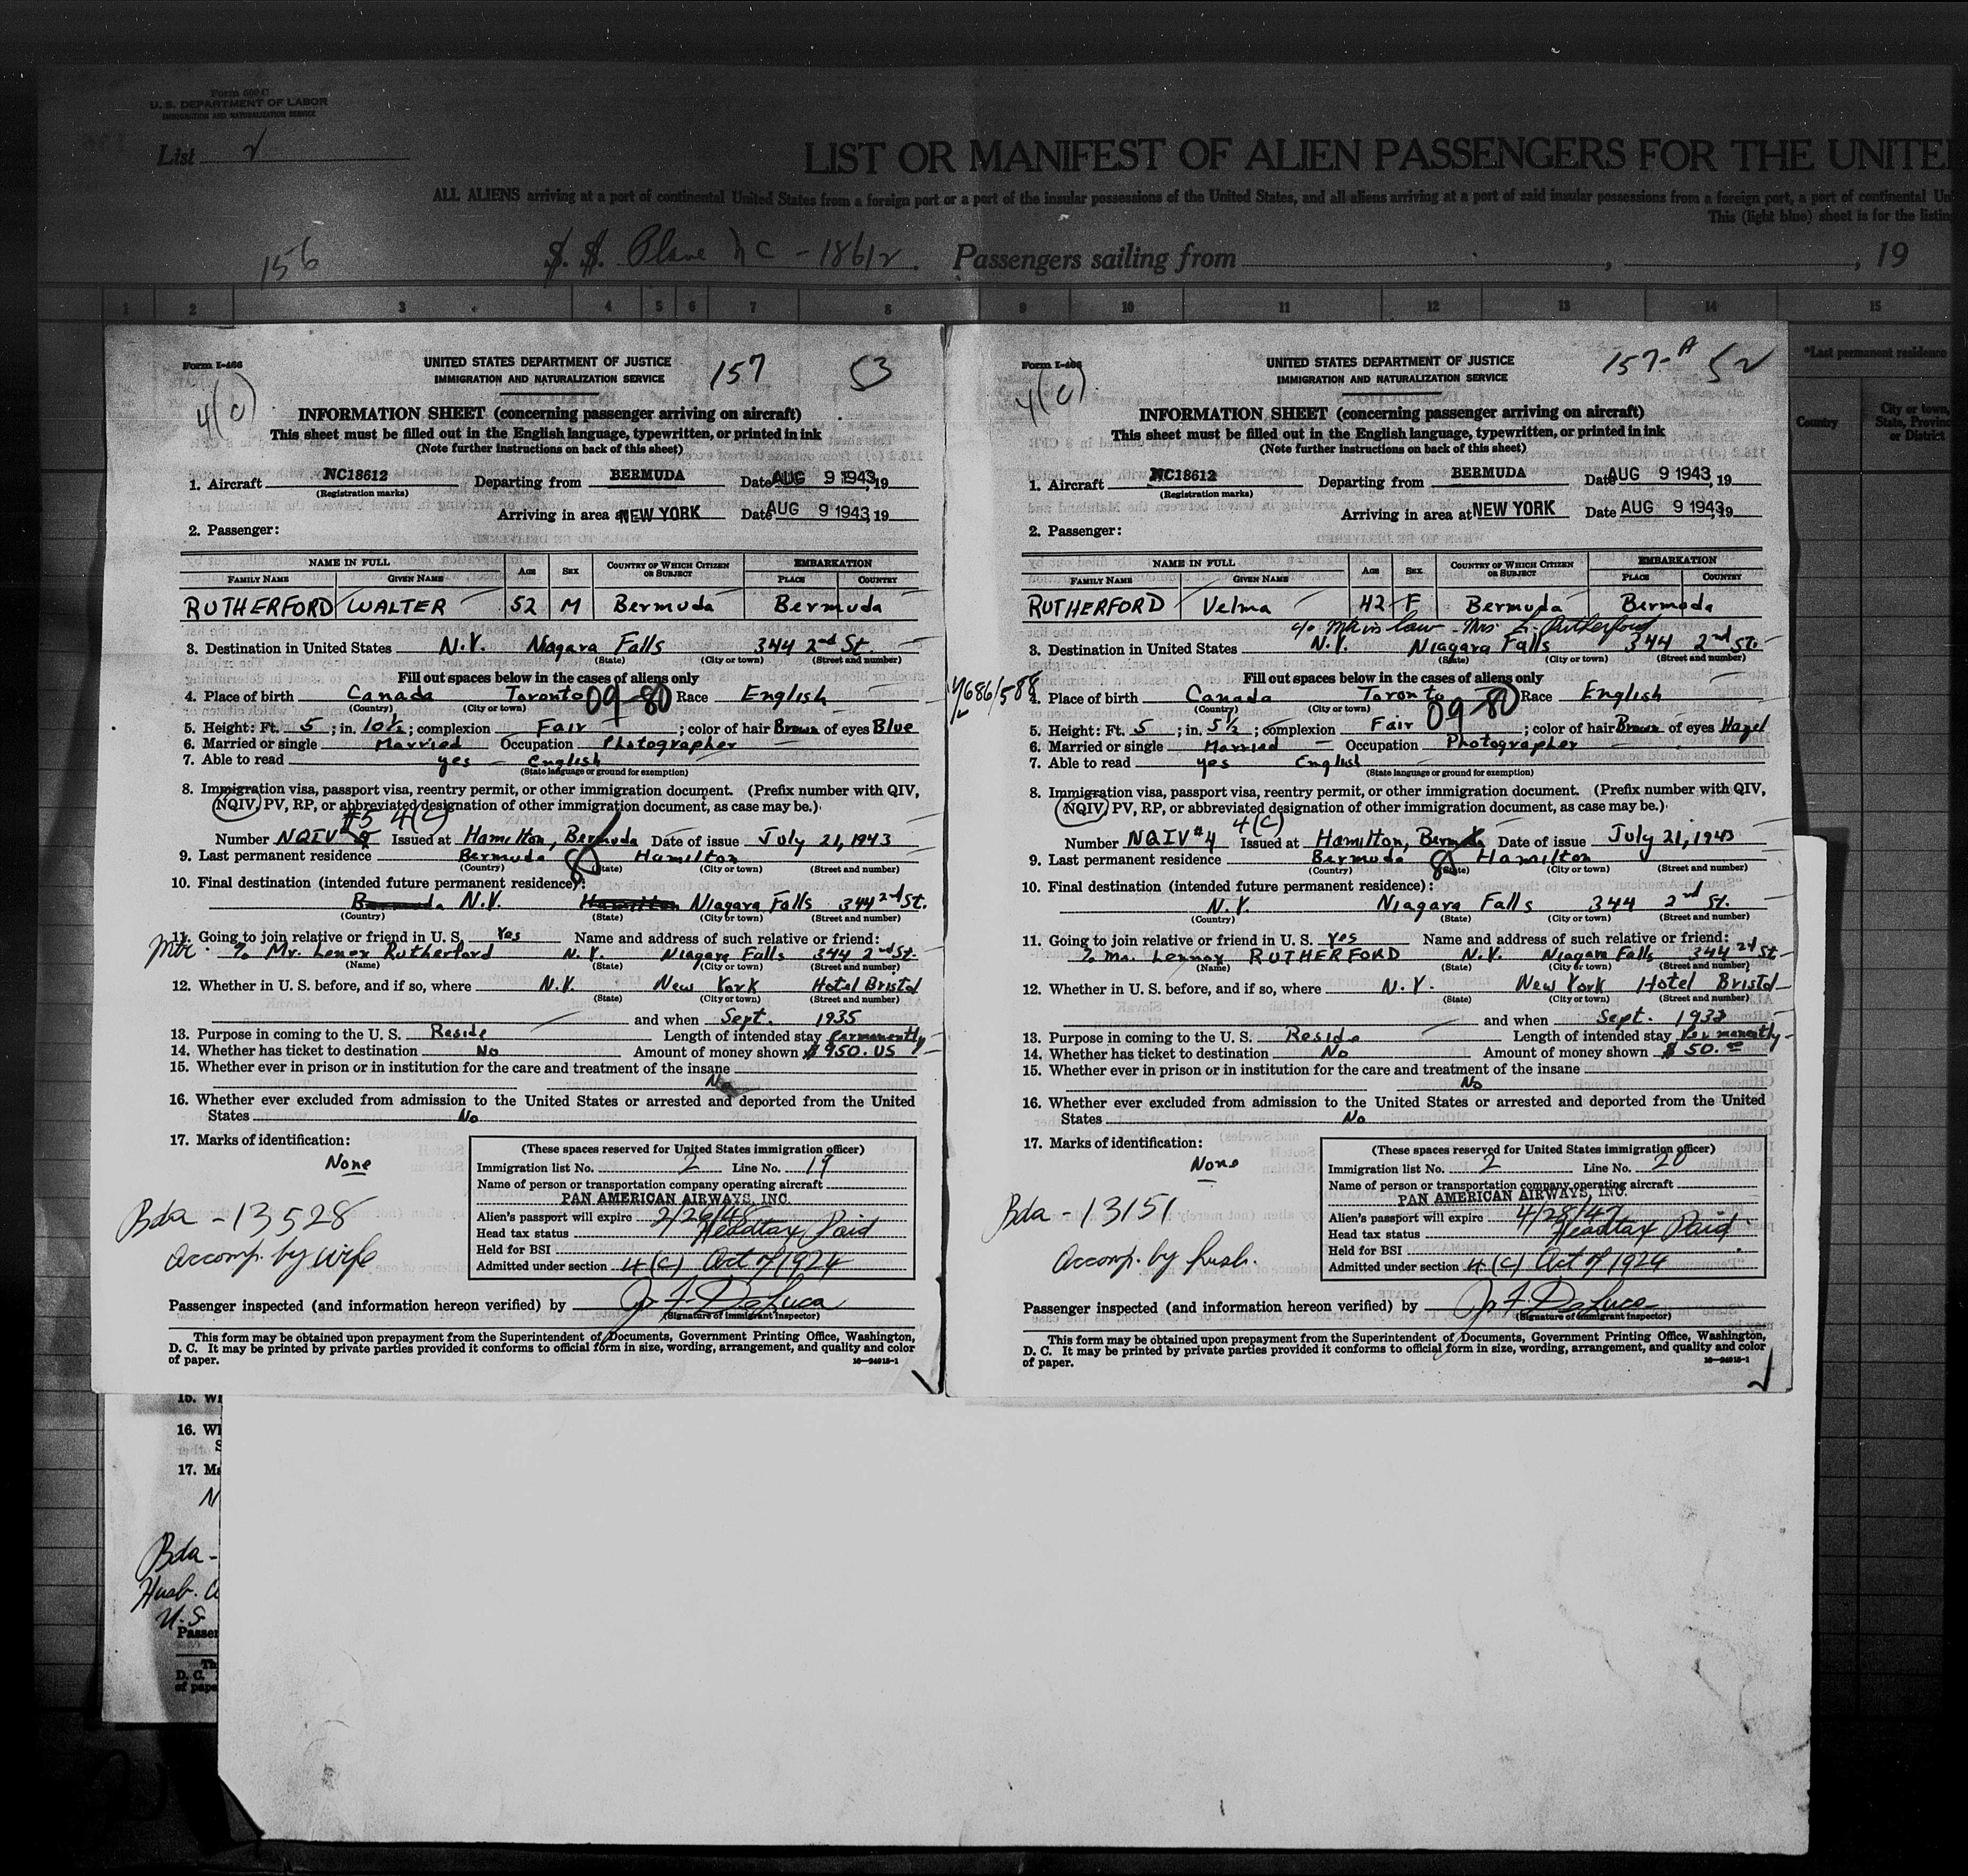 Form 500 C
U. S. DEPARTMENT OF LABOR
IMMIGRATION AND NATURALIZATION SERVICE
List 2
LIST OR MANIFEST OF ALIEN PASSENGERS FOR THE UNITE
ALL ALIENS arriving at a port of continental United States from a foreign port or a port of the insular possessions of the United States, and all aliens arriving at a port of said insular possessions from a foreign port, a port of continental Un
This (light blue) sheet is for the listin
156
S. S. Plane NC - 18612. Passengers sailing from , , 19
1 2 3 4 5 6 7 8 9 10 11 12 13 14 15
*Last permanent residence
Country
City or town,
State, Provinc
or District
Form I-466
UNITED STATES DEPARTMENT OF JUSTICE
IMMIGRATION AND NATURALIZATION SERVICE
157 53
4(c)
INFORMATION SHEET (concerning passenger arriving on aircraft)
This sheet must be filled out in the English language, typewritten, or printed in ink
(Note further instructions on back of this sheet)
1. Aircraft NC18612 Departing from BERMUDA Date AUG 9 1943, 19
(Registration marks)
Arriving in area at NEW YORK Date AUG 9 1943, 19
2. Passenger:
NAME IN FULL AGE SEX COUNTRY OF WHICH CITIZEN OR SUBJECT EMBARKATION
FAMILY NAME GIVEN NAME PLACE COUNTRY
RUTHERFORD WALTER 52 M Bermuda Bermuda
3. Destination in United States N.Y. Niagara Falls 344 2nd St.
(State) (City or town) (Street and number)
Fill out spaces below in the cases of aliens only
4. Place of birth Canada Toronto 09-80 Race English
(Country) (City or town)
5. Height: Ft. 5 ; in. 10½ ; complexion Fair ; color of hair Brown of eyes Blue
6. Married or single Married Occupation Photographer
7. Able to read yes English
(State language or ground for exemption)
8. Immigration visa, passport visa, reentry permit, or other immigration document. (Prefix number with QIV,
NQIV, PV, RP, or abbreviated designation of other immigration document, as case may be.)
#5 4(c)
Number NQIV Issued at Hamilton, Bermuda Date of issue July 21, 1943
9. Last permanent residence Bermuda Hamilton
(Country) (State) (City or town) (Street and number)
10. Final destination (intended future permanent residence):
Bermuda N.Y. Hamilton Niagara Falls 344 2nd St.
(Country) (State) (City or town) (Street and number)
11. Going to join relative or friend in U. S. Yes Name and address of such relative or friend:
% Mr. Lenox Rutherford N.Y. Niagara Falls 344 2nd St.
(Name) (State) (City or town) (Street and number)
12. Whether in U. S. before, and if so, where N.Y. New York Hotel Bristol
(State) (City or town) (Street and number)
and when Sept. 1935
13. Purpose in coming to the U. S. Reside Length of intended stay Permanently
14. Whether has ticket to destination No Amount of money shown $950. US
15. Whether ever in prison or in institution for the care and treatment of the insane
No
16. Whether ever excluded from admission to the United States or arrested and deported from the United
States No
17. Marks of identification:
None
(These spaces reserved for United States immigration officer)
Immigration list No. 2 Line No. 19
Name of person or transportation company operating aircraft
PAN AMERICAN AIRWAYS, INC.
Alien's passport will expire 2/26/48
Head tax status Headtax Paid
Held for BSI
Admitted under section 4(c) Act of 1924
Bda - 13528
Accomp. by wife
Passenger inspected (and information hereon verified) by J. F. DeLuca
(Signature of immigrant inspector)
This form may be obtained upon prepayment from the Superintendent of Documents, Government Printing Office, Washington,
D. C. It may be printed by private parties provided it conforms to official form in size, wording, arrangement, and quality and color
of paper.
16—24915-1
Form I-466
UNITED STATES DEPARTMENT OF JUSTICE
IMMIGRATION AND NATURALIZATION SERVICE
157-A 52
4(c)
INFORMATION SHEET (concerning passenger arriving on aircraft)
This sheet must be filled out in the English language, typewritten, or printed in ink
(Note further instructions on back of this sheet)
1. Aircraft NC18612 Departing from BERMUDA Date AUG 9 1943, 19
(Registration marks)
Arriving in area at NEW YORK Date AUG 9 1943, 19
2. Passenger:
NAME IN FULL AGE SEX COUNTRY OF WHICH CITIZEN OR SUBJECT EMBARKATION
FAMILY NAME GIVEN NAME PLACE COUNTRY
RUTHERFORD Velma 42 F Bermuda Bermuda
c/o in law - Mrs L. Rutherford
3. Destination in United States N.Y. Niagara Falls 344 2nd St.
(State) (City or town) (Street and number)
Fill out spaces below in the cases of aliens only
4. Place of birth Canada Toronto 09-80 Race English
(Country) (City or town)
5. Height: Ft. 5 ; in. 5½ ; complexion Fair ; color of hair Brown of eyes Hazel
6. Married or single Married Occupation Photographer
7. Able to read yes English
(State language or ground for exemption)
8. Immigration visa, passport visa, reentry permit, or other immigration document. (Prefix number with QIV,
NQIV, PV, RP, or abbreviated designation of other immigration document, as case may be.)
4(c)
Number NQIV #4 Issued at Hamilton, Bermuda Date of issue July 21, 1943
9. Last permanent residence Bermuda Hamilton
(Country) (State) (City or town) (Street and number)
10. Final destination (intended future permanent residence):
N.Y. Niagara Falls 344 2nd St.
(Country) (State) (City or town) (Street and number)
11. Going to join relative or friend in U. S. yes Name and address of such relative or friend:
% Mr. Lennox RUTHERFORD N.Y. Niagara Falls 344 2nd St
(Name) (State) (City or town) (Street and number)
12. Whether in U. S. before, and if so, where N.Y. New York Hotel Bristol
(State) (City or town) (Street and number)
and when Sept. 1933
13. Purpose in coming to the U. S. Reside Length of intended stay Permanently
14. Whether has ticket to destination No Amount of money shown $50.00
15. Whether ever in prison or in institution for the care and treatment of the insane
No
16. Whether ever excluded from admission to the United States or arrested and deported from the United
States No
17. Marks of identification:
None
(These spaces reserved for United States immigration officer)
Immigration list No. 2 Line No. 20
Name of person or transportation company operating aircraft
PAN AMERICAN AIRWAYS, INC.
Alien's passport will expire 4/28/47
Head tax status Headtax Paid
Held for BSI
Admitted under section 4(c) Act of 1924
Bda - 13151
Accomp. by husb.
Passenger inspected (and information hereon verified) by J. F. DeLuca
(Signature of immigrant inspector)
This form may be obtained upon prepayment from the Superintendent of Documents, Government Printing Office, Washington,
D. C. It may be printed by private parties provided it conforms to official form in size, wording, arrangement, and quality and color
of paper.
16—24915-1
15. Wh
16. Wh
S
17. Ma
N
Bda -
Husb.
U. S.
Passen
Th
D. C.
of pape